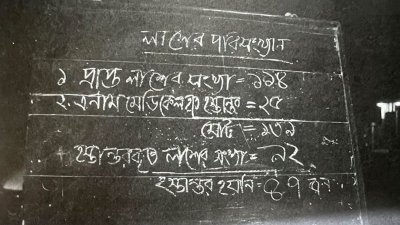 লাশের পরিসংখ্যান
১. প্রাপ্ত লাশের সংখ্যা = ১১৪
২. এনাম মেডিকেল হতে হস্তান্তর = ২৫
মোট = ১৩৯
হস্তান্তরকৃত লাশের সংখ্যা = ৯২
হস্তান্তর হয়নি = ৪৭ জন